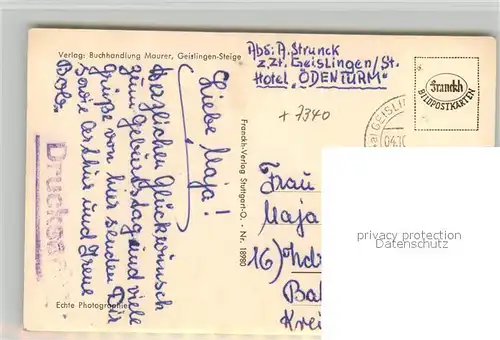 Verlag: Buchhandlung Maurer, Geislingen-Steige
Abs: A. Strunck
z.Zt. Geislingen/St.
Hotel „ÖDENTURM"
+ 7340
Franckh
BILDPOSTKARTEN
GEISLIN
Liebe Maja!
Herzlichen Glückwunsch
zum Geburtstag und viele
Grüße von hier senden Dir
Bob
sowie Arthur und Irene
Drucksa
Franckh-Verlag Stuttgart-O. - Nr. 18980
Frau
Maja
16) Ohd
Ba
Krei
Echte Photographie
privacy protection
Datenschutz